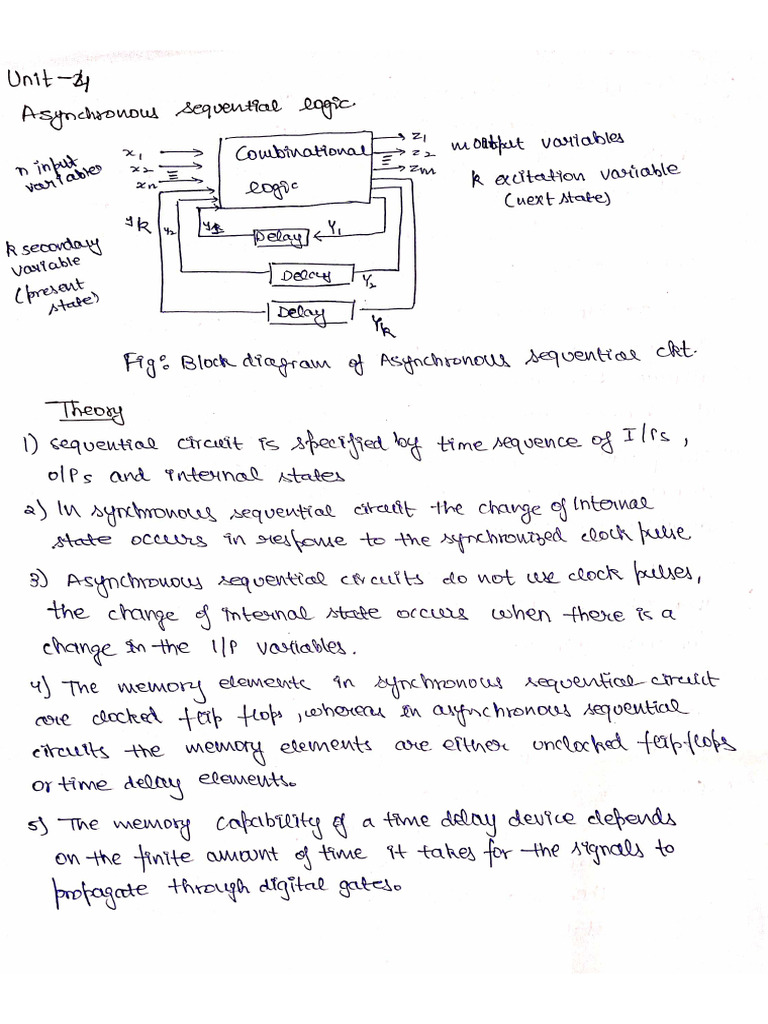 Unit-4
Asynchronous sequential logic.
n input variables
x1
x2
xn
Combinational
logic
z1
z2
zm
m output variables
k excitation variable
(next state)
yk
y2
Delay
Y1
k secondary
variable
(present
state)
Delay
Y2
Delay
Yk
Fig: Block diagram of Asynchronous sequential ckt.
Theory
1) sequential circuit is specified by time sequence of I/Ps,
O/Ps and internal states
2) In synchronous sequential circuit the change of internal
state occurs in response to the synchronized clock pulse
3) Asynchronous sequential circuits do not use clock pulses,
the change of internal state occurs when there is a
change in the I/P variables.
4) The memory elements in synchronous sequential circuit
are clocked flip flops, whereas in asynchronous sequential
circuits the memory elements are either unclocked flip-flops
or time delay elements.
5) The memory capability of a time delay device depends
on the finite amount of time it takes for the signals to
propagate through digital gates.